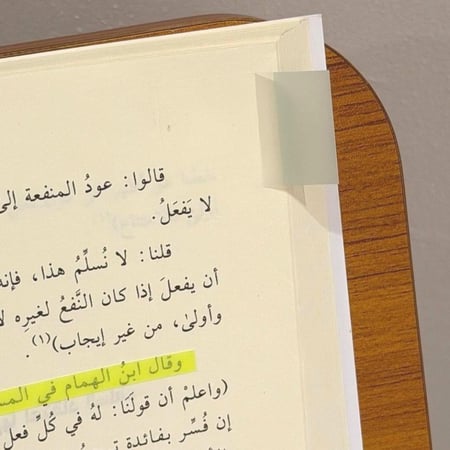 قالوا: عودُ المنفعة إلى
لا يَفعَلُ.
قلنا: لا نُسلِّمُ هذا، فإنه
أن يفعلَ إذا كان النَّفعُ لغيرِه
وأولىٰ، من غير إيجاب)(١).
وقال ابنُ الهمام في
(واعلمْ أن قولَنَا: لهُ في كُلِّ فعلٍ
إن فُسِّر بفائدة